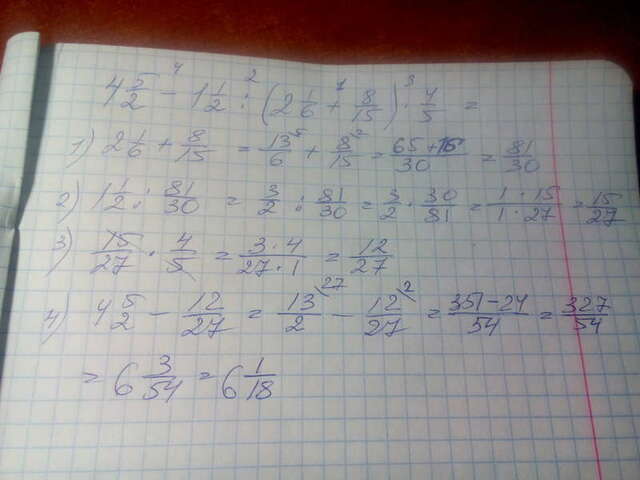 4 5/2 -⁴ 1 1/2 :² (2 1/6 +¹ 8/15) ·³ 4/5 =
1) 2 1/6 + 8/15 = 13/6 ⁵ + 8/15 ² = 65+16/30 = 81/30
2) 1 1/2 : 81/30 = 3/2 : 81/30 = 3/2 · 30/81 = 1·15/1·27 = 15/27
3) 15/27 · 4/5 = 3·4/27·1 = 12/27
4) 4 5/2 - 12/27 = 13/2 ²⁷ - 12/27 ² = 351-24/54 = 327/54
= 6 3/54 = 6 1/18